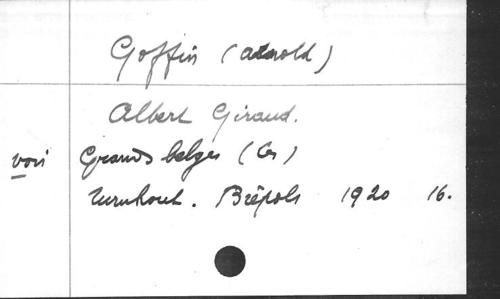 Goffin (Arnold)
Albert Giraud.
voir Grands belges (Les)
Turnhout. Brépols 1920 16.